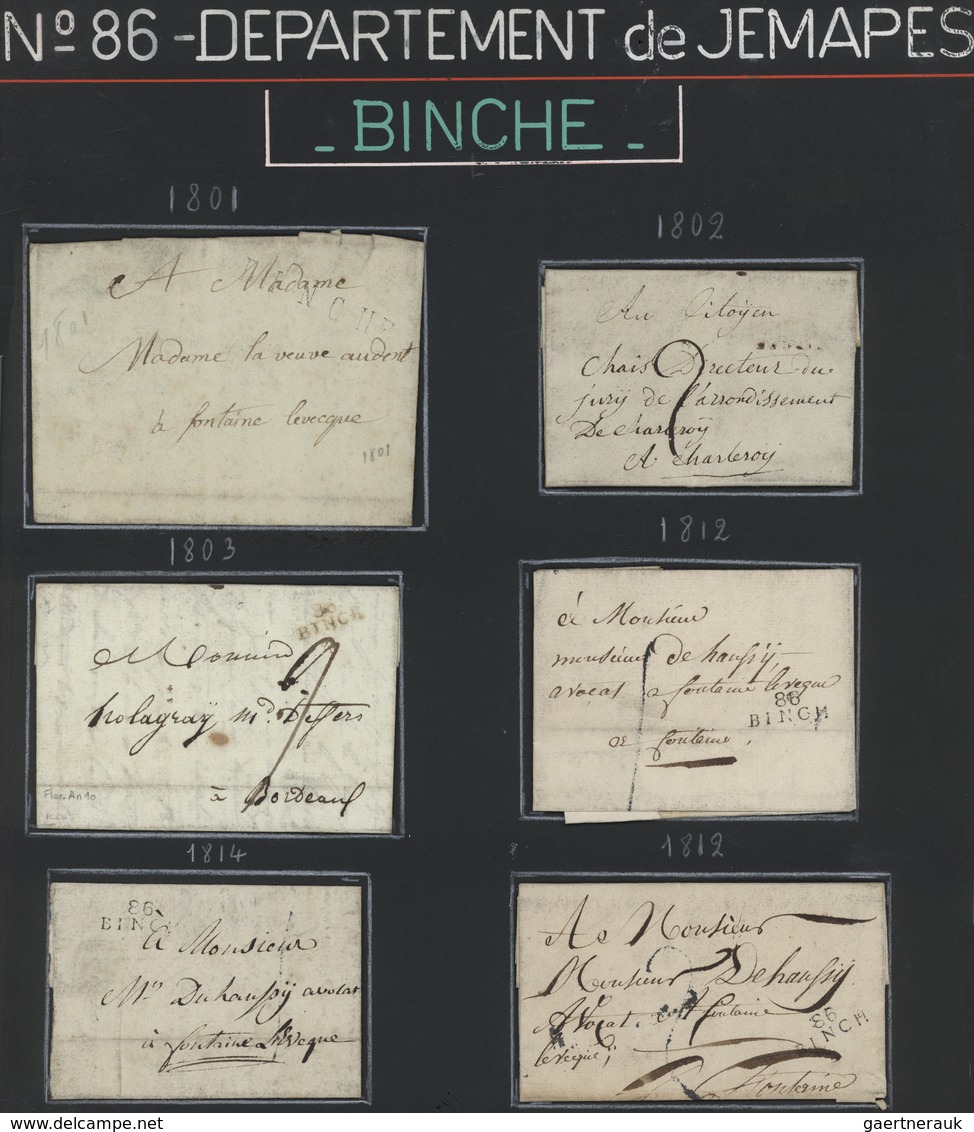 Nº 86 - DEPARTEMENT de JEMAPES
- BINCHE -
1801
A Madame
Madame la veuve audent
à fontaine levecque
1801
1801
1802
Au Citoÿen
chais Directeur du
jurÿ de l'arrondissement
De charleroÿ
A Charleroÿ
1803
86
BINCH
holagraÿ md.
à Bordeaux
Flor. An 10
1812
à Monsieur
monsieur dehaussÿ
avocat a fontaine leveque
a fontaine.
86
BINCH
1814
86
BINCH
à Monsieur
Mr Duhaussÿ avocat
à fontaine Leveque
1812
A Monsieur
Monsieur Dehaussÿ
Avocat. a fontaine
leveque;
Fontaine
86
BINCH
gaertnerauk